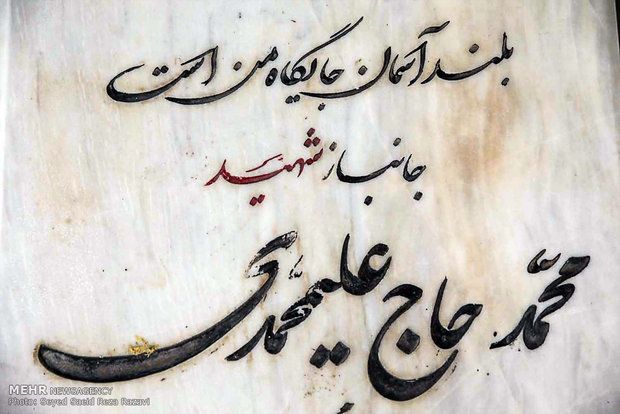 بلند آسمان جایگاه من است
جانباز شهید
محمد حاج علیمحمدی
MEHR NEWSAGENCY
Photo: Seyed Saeid Reza Razavi